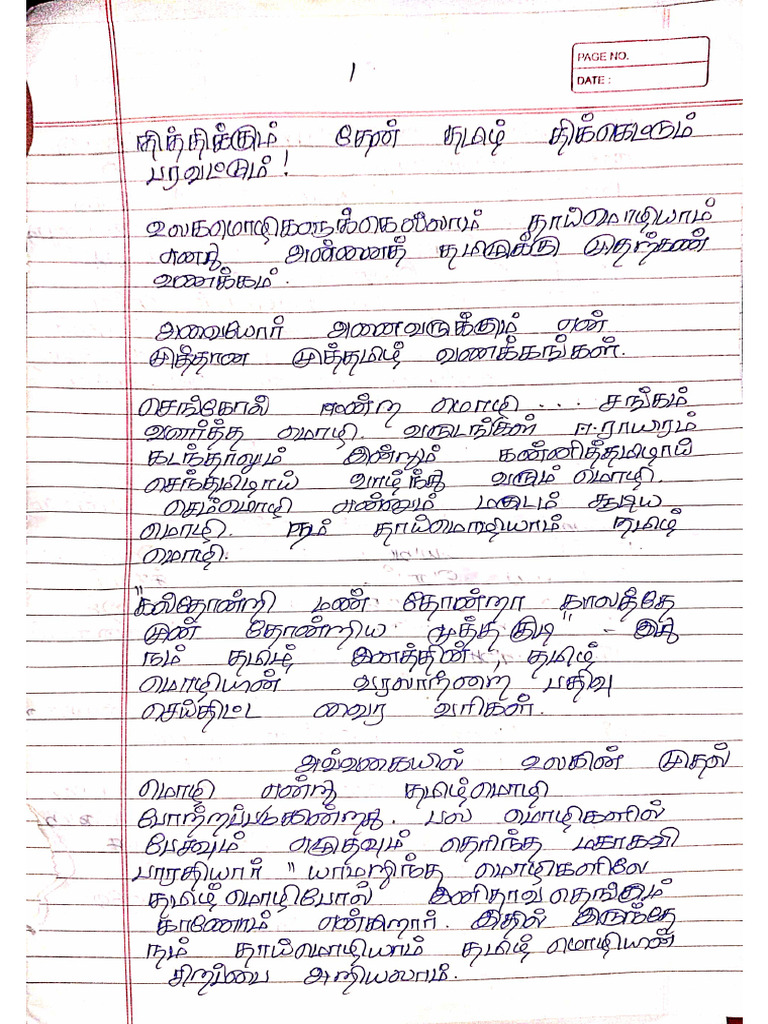 1
PAGE NO.
DATE :
தித்திக்கும் தேன் தமிழ் திக்கெட்டும்
பரவட்டும்!
உலகமொழிகளுக்கெல்லாம் தாய்மொழியாம்
எனது அன்னைத் தமிழுக்கு முதற்கண்
வணக்கம்.
அவையோர் அனைவருக்கும் என்
முத்தான முத்தமிழ் வணக்கங்கள்.
செங்கோல் ஈன்ற மொழி... சங்கம்
வளர்த்த மொழி. வருடங்கள் ஈராயிரம்
கடந்தாலும் இன்றும் கன்னித்தமிழாய்
செந்தமிழாய் வாழ்ந்து வரும் மொழி.
செம்மொழி என்னும் மகுடம் சூடிய
மொழி. நம் தாய்மொழியாம் தமிழ்
மொழி.
"கல்தோன்றி மண் தோன்றா காலத்தே
முன் தோன்றிய மூத்த குடி" - இது
நம் தமிழ் இனத்தின், தமிழ்
மொழியின் வரலாற்றை பதிவு
செய்திட்ட வைர வரிகள்.
அவ்வகையில் உலகின் முதல்
மொழி என்று தமிழ்மொழி
போற்றப்படுகின்றது. பல மொழிகளில்
பேசவும் எழுதவும் தெரிந்த மகாகவி
பாரதியார் "யாமறிந்த மொழிகளிலே
தமிழ்மொழிபோல் இனிதாவதெங்கும்
காணோம் என்கிறார். இதில் இருந்தே
நம் தாய்மொழியாம் தமிழ் மொழியின்
சிறப்பை அறியலாம்.